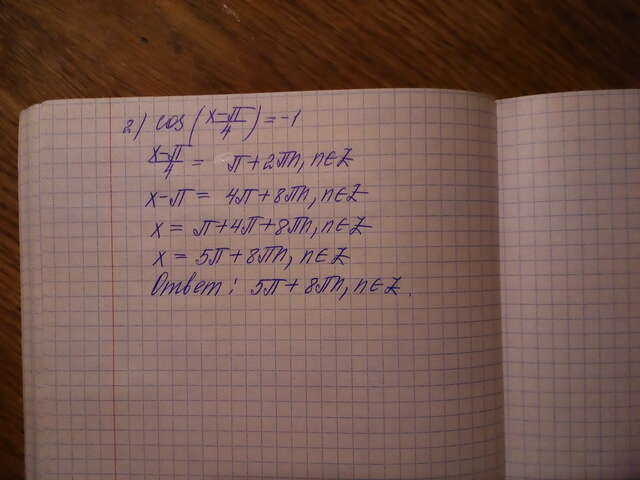 2) cos(x-π/4) = -1
x-π/4 = π+2πn, n∈Z
x-π = 4π+8πn, n∈Z
x = π+4π+8πn, n∈Z
x = 5π+8πn, n∈Z
Ответ: 5π+8πn, n∈Z.